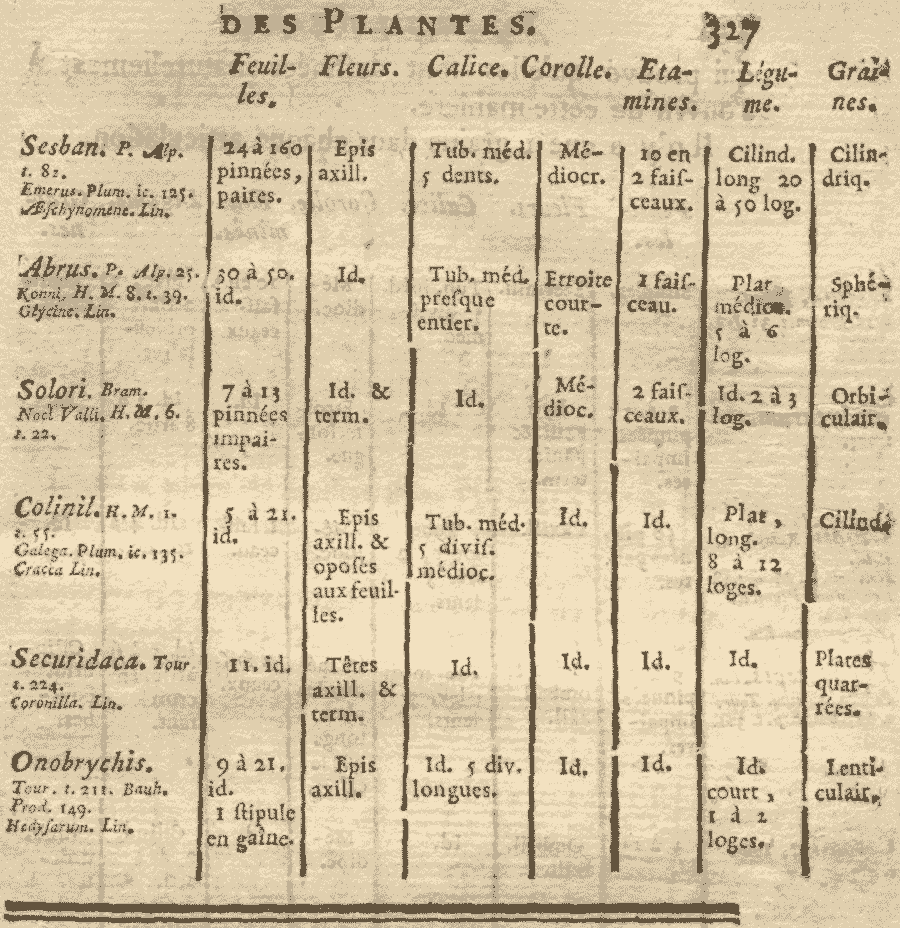 DES PLANTES. 327
Feuil- Fleurs. Calice. Corolle. Eta- Légu- Grai-
les. mines. me. nes.
Sesban. P. Alp. 24 à 160 Epis Tub. méd. Mé- 10 en Cilind. Cilin-
t. 82. pinnées, axill. 5 dents. diocr. 2 faiſ- long 20 driq.
Emerus. Plum. ic. 125. paires. ceaux. à 50 log.
Æſchynomene. Lin.
Abrus. P. Alp. 25. 30 à 50. Id. Tub. méd. Etroite 1 faiſ- Plat Sphé-
H. M. 8. t. 39. id. preſque cour- ceau. médioc. riq.
Glycine. Lin. entier. te. 5 à 6
log.
Solori. Bram. 7 à 13 Id. & Id. Mé- 2 faiſ- Id. 2 à 3 Orbi-
Noel Valli. H. M. 6. pinnées term. dioc. ceaux. log. culair.
t. 22. impai-
res.
Colinil. H. M. 1. 5 à 21. Epis Tub. méd. Id. Id. Plat, Cilind.
t. 55. id. axill. & 5 diviſ. long.
Galega. Plum. ic. 135. opoſés médioc. 8 à 12
Cracca Lin. aux feuil- loges.
les.
Securidaca. Tour 11. id. Têtes Id. Id. Id. Id. Plates
t. 224. axill. & quar-
Coronilla. Lin. term. rées.
Onobrychis. 9 à 21. Epis Id. 5 div. Id. Id. Id. Lenti-
Tour. t. 211. Bauh. id. axill. longues. court, culair.
Prod. 149. 1 ſtipule 1 à 2
Hedyſarum. Lin. en gaîne. loges.